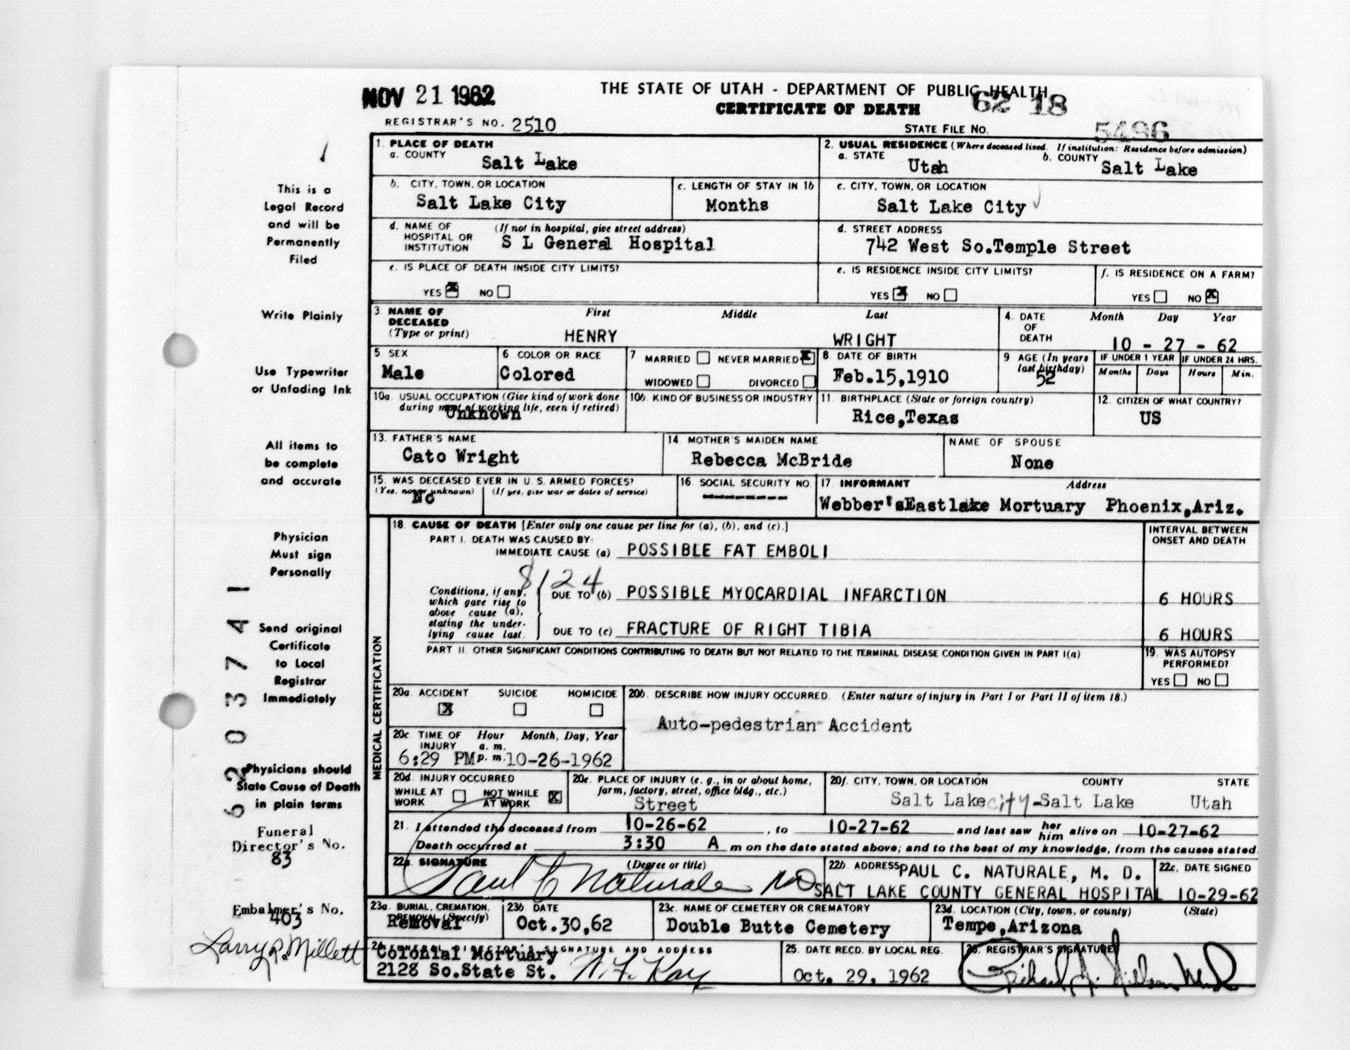 NOV 21 1962
THE STATE OF UTAH - DEPARTMENT OF PUBLIC HEALTH
CERTIFICATE OF DEATH
62 18
REGISTRAR'S NO. 2510
STATE FILE NO. 5496
This is a
Legal Record
and will be
Permanently
Filed
Write Plainly
Use Typewriter
or Unfading Ink
All items to
be complete
and accurate
Physician
Must sign
Personally
Send original
Certificate
to Local
Registrar
Immediately
Physicians should
State Cause of Death
in plain terms
Funeral
Director's No.
83
Embalmer's No.
403
Larry R. Millett
62 0 3 7 4 1
1. PLACE OF DEATH
a. COUNTY Salt Lake
2. USUAL RESIDENCE (Where deceased lived. If institution: Residence before admission)
a. STATE Utah b. COUNTY Salt Lake
b. CITY, TOWN, OR LOCATION
Salt Lake City
c. LENGTH OF STAY IN 1b
Months
c. CITY, TOWN, OR LOCATION
Salt Lake City
d. NAME OF HOSPITAL OR INSTITUTION (If not in hospital, give street address)
S L General Hospital
d. STREET ADDRESS
742 West So.Temple Street
e. IS PLACE OF DEATH INSIDE CITY LIMITS?
YES X NO
e. IS RESIDENCE INSIDE CITY LIMITS?
YES X NO
f. IS RESIDENCE ON A FARM?
YES NO X
3. NAME OF DECEASED (Type or print)
First Middle Last
HENRY WRIGHT
4. DATE OF DEATH Month Day Year
10 - 27 - 62
5 SEX
Male
6 COLOR OR RACE
Colored
7 MARRIED NEVER MARRIED X
WIDOWED DIVORCED
8 DATE OF BIRTH
Feb.15,1910
9 AGE (In years last birthday)
52
IF UNDER 1 YEAR IF UNDER 24 HRS.
Months Days Hours Min.
10a. USUAL OCCUPATION (Give kind of work done during most of working life, even if retired)
Unknown
10b. KIND OF BUSINESS OR INDUSTRY
11. BIRTHPLACE (State or foreign country)
Rice,Texas
12. CITIZEN OF WHAT COUNTRY?
US
13. FATHER'S NAME
Cato Wright
14. MOTHER'S MAIDEN NAME
Rebecca McBride
NAME OF SPOUSE
None
15. WAS DECEASED EVER IN U. S. ARMED FORCES?
(Yes, no, or unknown) (If yes, give war or dates of service)
No
16. SOCIAL SECURITY NO.
---------
17. INFORMANT Address
Webber'sEastlake Mortuary Phoenix,Ariz.
MEDICAL CERTIFICATION
18. CAUSE OF DEATH [Enter only one cause per line for (a), (b), and (c).]
INTERVAL BETWEEN ONSET AND DEATH
PART I. DEATH WAS CAUSED BY:
IMMEDIATE CAUSE (a) POSSIBLE FAT EMBOLI
8124
Conditions, if any, which gave rise to above cause (a), stating the underlying cause last.
DUE TO (b) POSSIBLE MYOCARDIAL INFARCTION 6 HOURS
DUE TO (c) FRACTURE OF RIGHT TIBIA 6 HOURS
PART II. OTHER SIGNIFICANT CONDITIONS CONTRIBUTING TO DEATH BUT NOT RELATED TO THE TERMINAL DISEASE CONDITION GIVEN IN PART I(a)
19. WAS AUTOPSY PERFORMED?
YES NO
20a. ACCIDENT SUICIDE HOMICIDE
X
20b. DESCRIBE HOW INJURY OCCURRED. (Enter nature of injury in Part I or Part II of item 18.)
Auto-pedestrian Accident
20c. TIME OF INJURY Hour Month, Day, Year
a. m.
6:29 PM p. m. 10-26-1962
20d. INJURY OCCURRED
WHILE AT WORK NOT WHILE AT WORK X
20e. PLACE OF INJURY (e. g., in or about home, farm, factory, street, office bldg., etc.)
Street
20f. CITY, TOWN, OR LOCATION COUNTY STATE
Salt Lake city-Salt Lake Utah
21. I attended the deceased from 10-26-62, to 10-27-62 and last saw her him alive on 10-27-62
Death occurred at 3:30 A m on the date stated above; and to the best of my knowledge, from the causes stated.
22a. SIGNATURE (Degree or title)
Paul C Naturale MD
22b. ADDRESS PAUL C. NATURALE, M. D.
SALT LAKE COUNTY GENERAL HOSPITAL
22c. DATE SIGNED
10-29-62
23a. BURIAL, CREMATION, REMOVAL (Specify)
Removal
23b. DATE
Oct.30,62
23c. NAME OF CEMETERY OR CREMATORY
Double Butte Cemetery
23d. LOCATION (City, town, or county) (State)
Tempe,Arizona
24. FUNERAL DIRECTOR'S SIGNATURE AND ADDRESS
Colonial Mortuary
2128 So.State St.
25. DATE RECD. BY LOCAL REG.
Oct. 29, 1962
26. REGISTRAR'S SIGNATURE